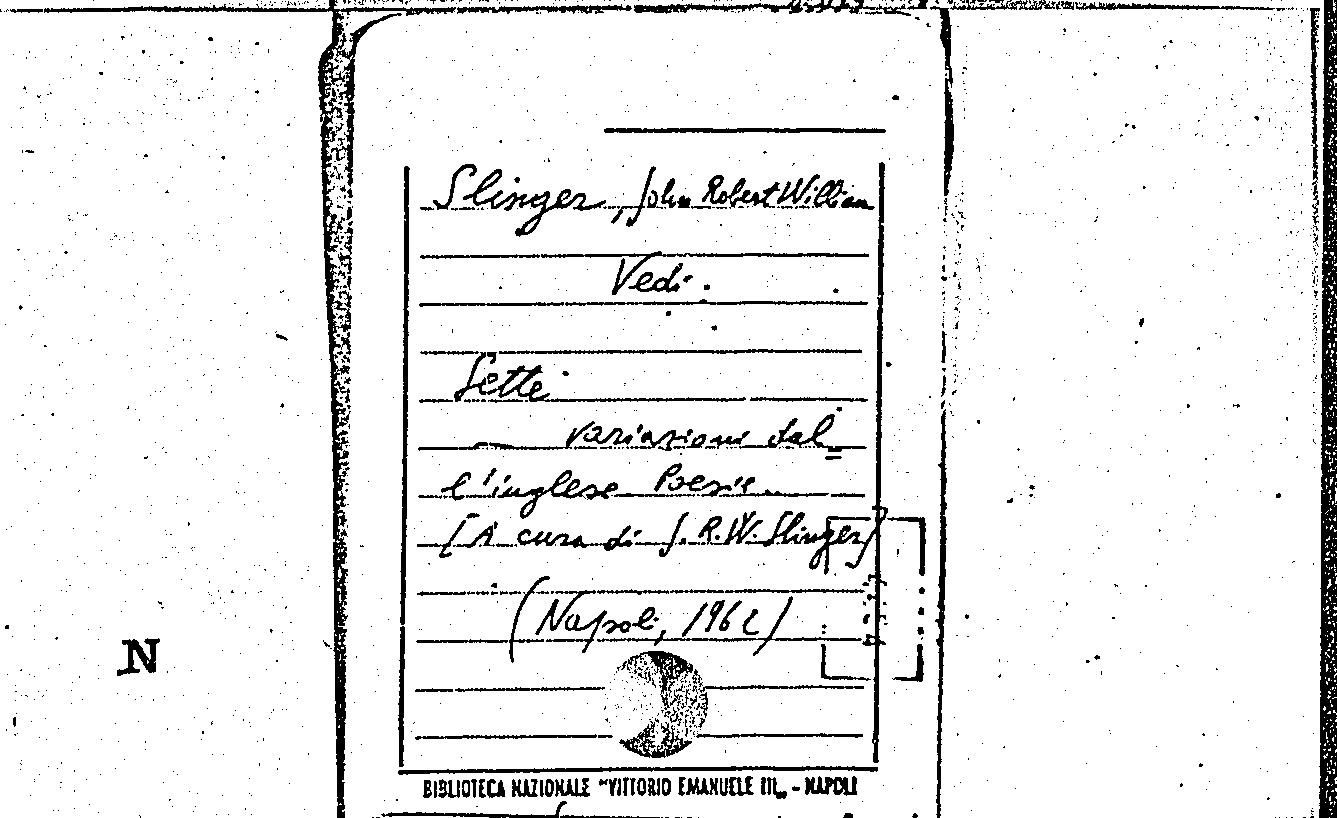 Slinger, John Robert William
Vedi.
Sette
— variazioni dal=
l'inglese Poesie..
[A cura di J.R.W. Slinger]
(Napoli, 1962)
N
BIBLIOTECA NAZIONALE "VITTORIO EMANUELE III„ - NAPOLI